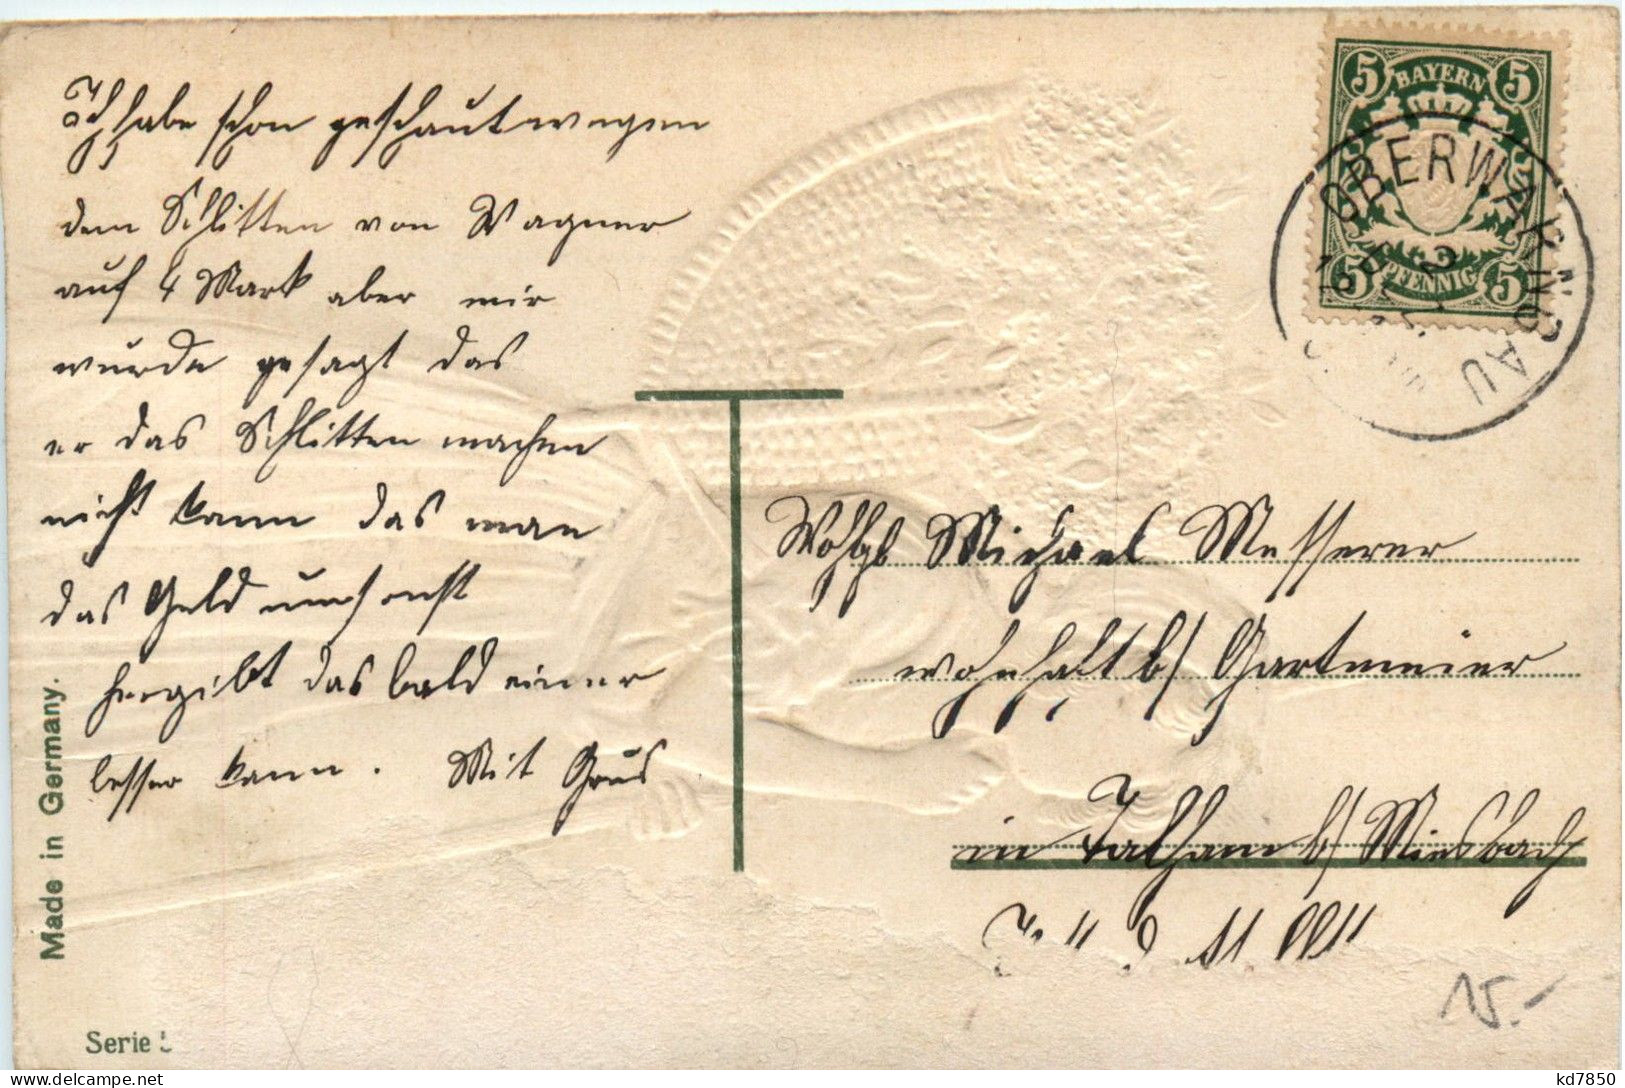 Ich habe schon geschaut wegen
dem Schlitten von Wagner
auf 4 Mark aber mir
wurde gesagt das
er das Schlitten machen
nicht kann das man
das Geld umsonst
hergibt das bald einer
besser kann. Mit Grus
BAYERN
5 5
5 PFENNIG 5
OBERWARNGAU
2
Wohlgb Michael Messerer
wohnhaft b/ Gartmeier
in Thalham b/ Miesbach
15.-
Made in Germany.
Serie
kd7850